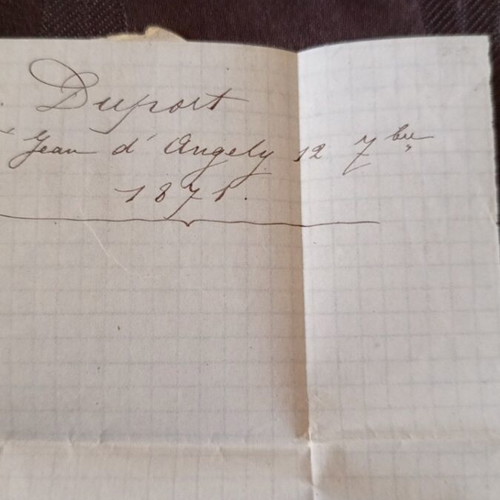 Duport
Jean d'Angely 12 7bre
1871.